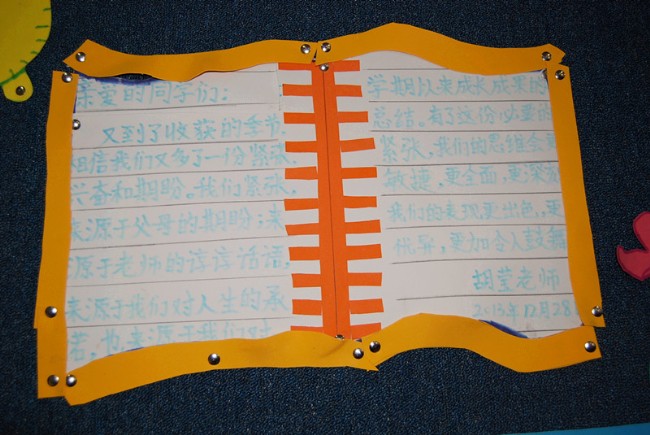 亲爱的同学们：
又到了收获的季节,
相信我们又多了一份紧张,
兴奋和期盼。我们紧张,
来源于父母的期盼；来
源于老师的谆谆话语,
来源于我们对人生的承
若,也来源于我们对
学期以来成长成果的
总结。有了这份必要的
紧张,我们的思维会更
敏捷,更全面,更深刻
我们的表现更出色,更
优异,更加令人鼓舞
胡莹老师
2013年12月28